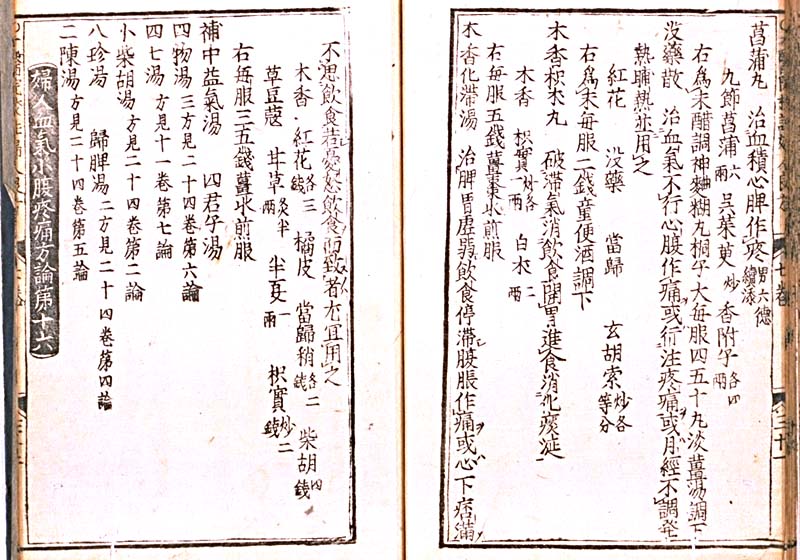 菖蒲丸 治血積心脾作疼 男六德續添
九節菖蒲 六兩 吳茱萸 炒 香附子 各四兩
右爲末醋調神麯糊丸桐子大每服四五十丸淡薑湯調下
没藥散 治血氣不行心腹作痛或行注疼痛或月經不調発
熱晡熱並用之
紅花 没藥 當歸 玄胡索 炒各等分
右爲末每服二錢童便酒調下
木香枳朮丸 破滯氣消飲食開胃進食消化痰涎
木香 枳實 炒各一兩 白朮 二兩
右每服五錢薑棗水煎服
木香化滯湯 治脾胃虛弱飲食停滯腹脹作痛或心下痞滿
不思飲食若憂怒飲食而致者亦宜用之
木香 紅花 各三錢 橘皮 當歸稍 各二錢 柴胡 四錢
草豆蔻 甘草 炙半兩 半夏 一兩 枳實 炒二錢
右每服三五錢薑水煎服
補中益氣湯 四君子湯
四物湯 三方見二十四卷第六論
四七湯 方見十一卷第七論
小柴胡湯 方見二十四卷第二論
八珍湯 歸脾湯 二方見二十四卷第四論
二陳湯 方見二十四卷第五論
婦人血氣小腹疼痛方論第十六